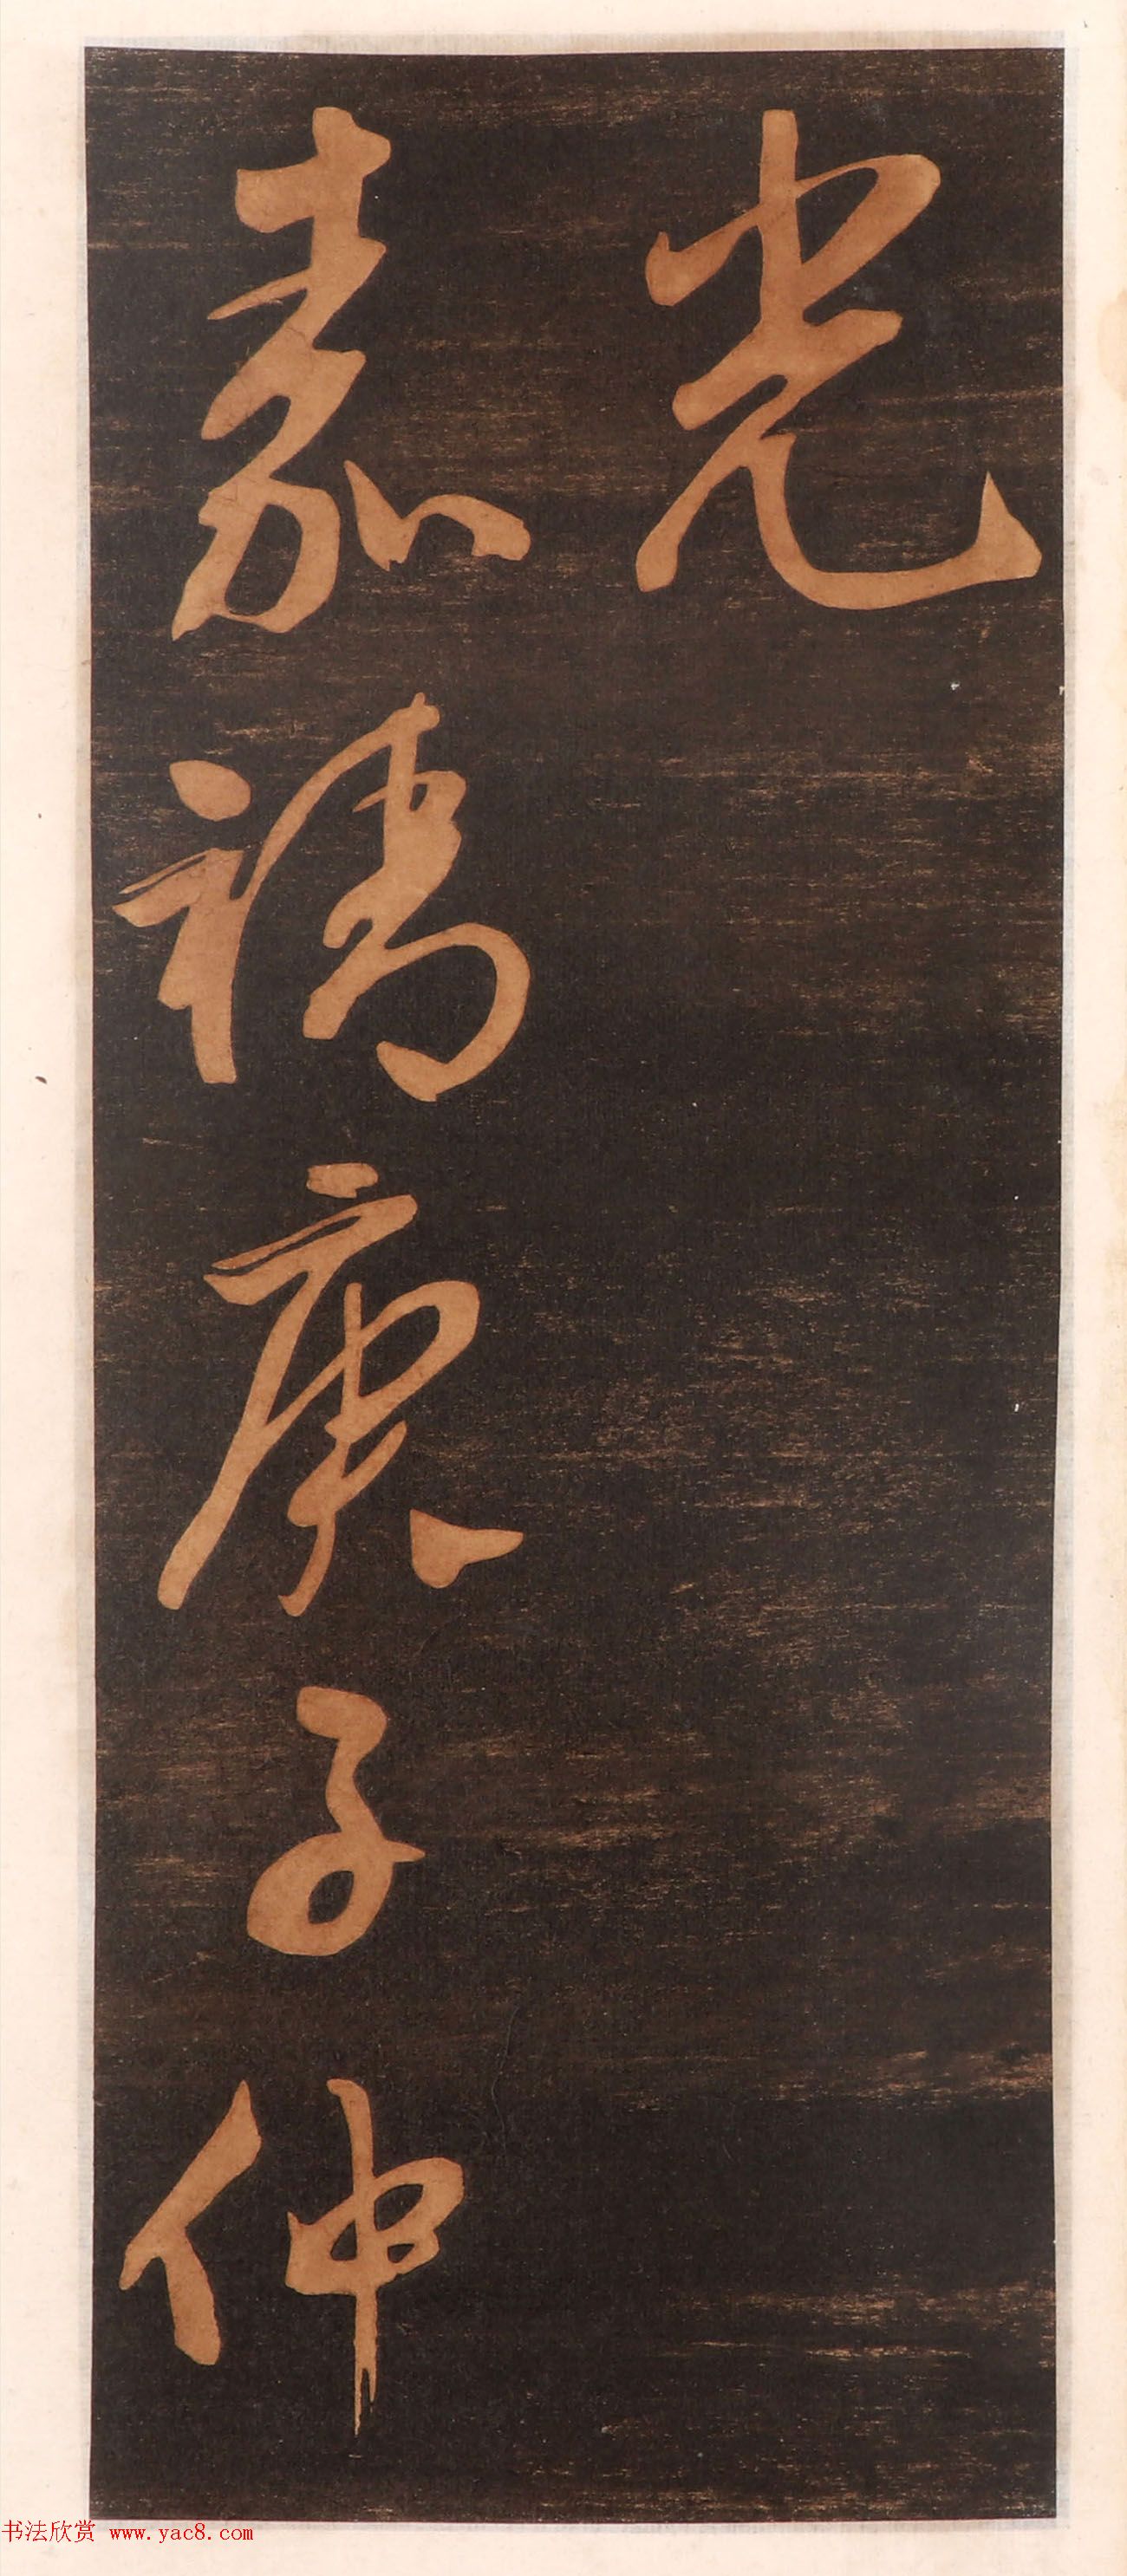 光
嘉靖庚子仲
书法欣赏 www.yac8.com